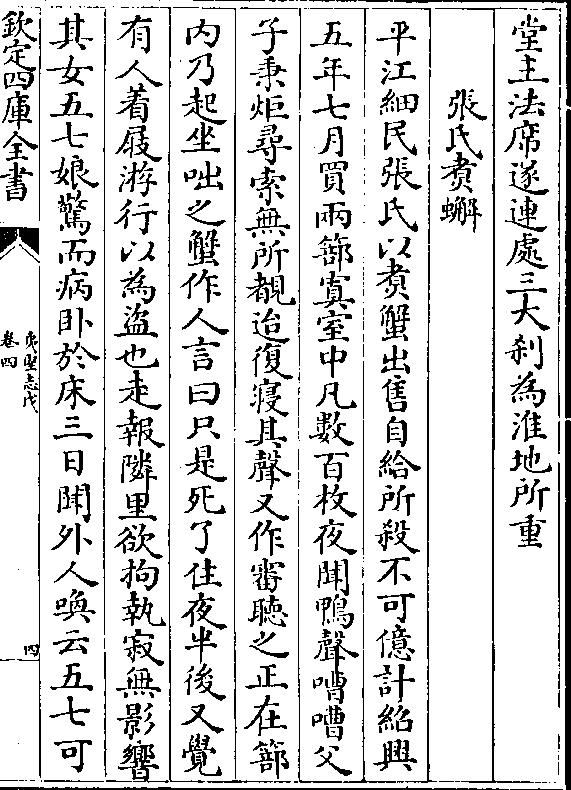 堂主法席遂連處三大刹為淮地所重
張氏煮蠏
平江細民張氏以煮蟹出售自給所殺不可億計紹興
五年七月買兩篰寘室中凡數百枚夜聞鴨聲嘈嘈父
子秉炬尋索無所覩迨復寢其聲又作審聽之正在篰
内乃起坐咄之蟹作人言曰只是死了住夜半後又覺
有人着屐游行以為盜也走報隣里欲拘執寂無影響
其女五七娘驚而病卧於床三日聞外人喚云五七可
欽定四庫全書
夷堅志戊
卷四
四